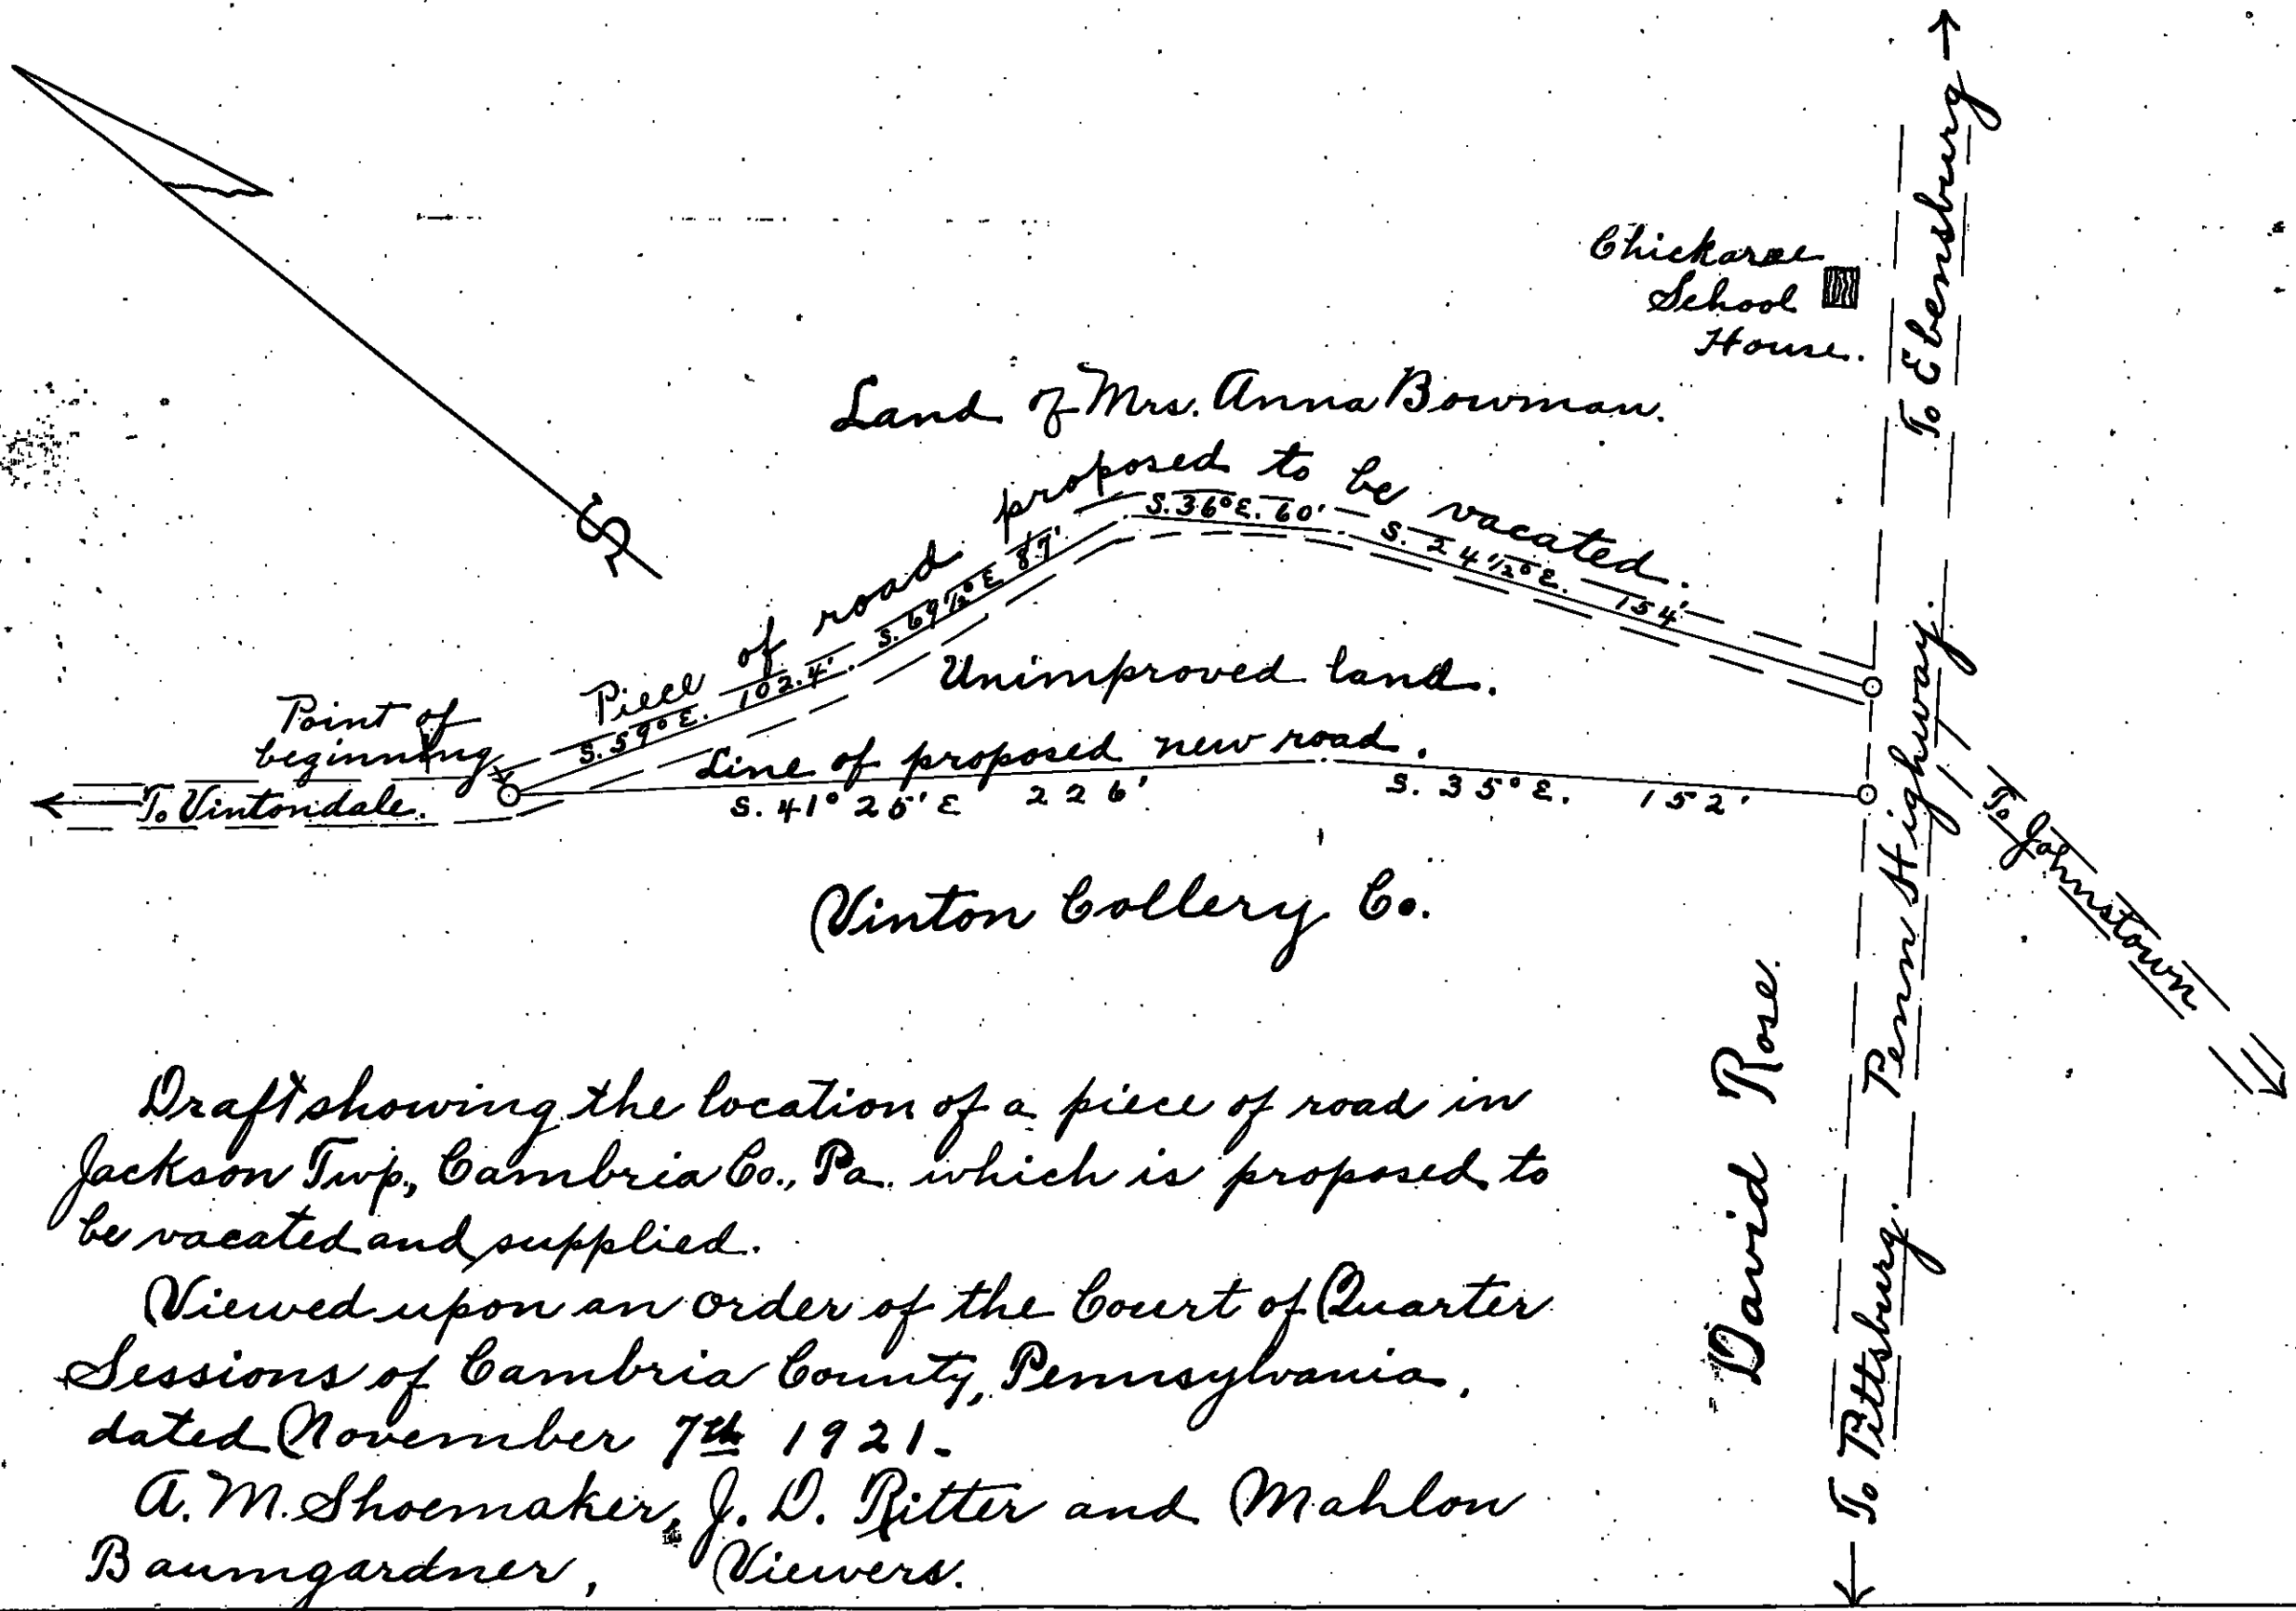 To Ebensburg
Chickaree
School
House.
Land of Mrs. Anna Bowman.
Piece of road proposed to be vacated.
S. 59° E. 102.4'
S. 69 1/2° E 87'
S. 36° E. 60'
S. 24 1/2° E. 154'
S
Unimproved land.
Point of
beginning
To Vintondale.
Line of proposed new road.
S. 41° 25' E 226'
S. 35° E. 152'
Penn Highway.
To Johnstown
Vinton Collery Co.
David Rose.
To Pittsburg.
Draft showing the location of a piece of road in
Jackson Twp., Cambria Co., Pa. which is proposed to
be vacated and supplied.
Viewed upon an order of the Court of Quarter
Sessions of Cambria County, Pennsylvania,
dated November 7th 1921.
A. M. Shoemaker, J. D. Ritter and Mahlon
Baumgardner, Viewers.